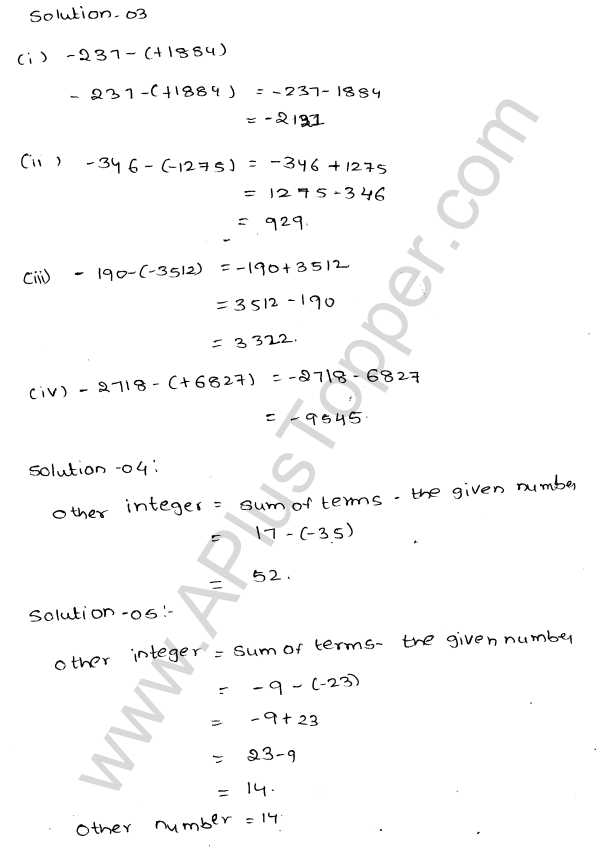 Solution-03
(i) -237-(+1884)
-237-(+1884) = -237-1884
= -2121
(ii) -346-(-1275) = -346+1275
= 1275-346
= 929.
(iii) -190-(-3512) = -190+3512
= 3512-190
= 3322.
(iv) -2718-(+6827) = -2718-6827
= -9545.
Solution-04:
Other integer = sum of terms - the given number
= 17-(-35)
= 52.
Solution-05:-
Other integer = sum of terms- the given number
= -9-(-23)
= -9+23
= 23-9
= 14.
Other number = 14
www.APlusTopper.com